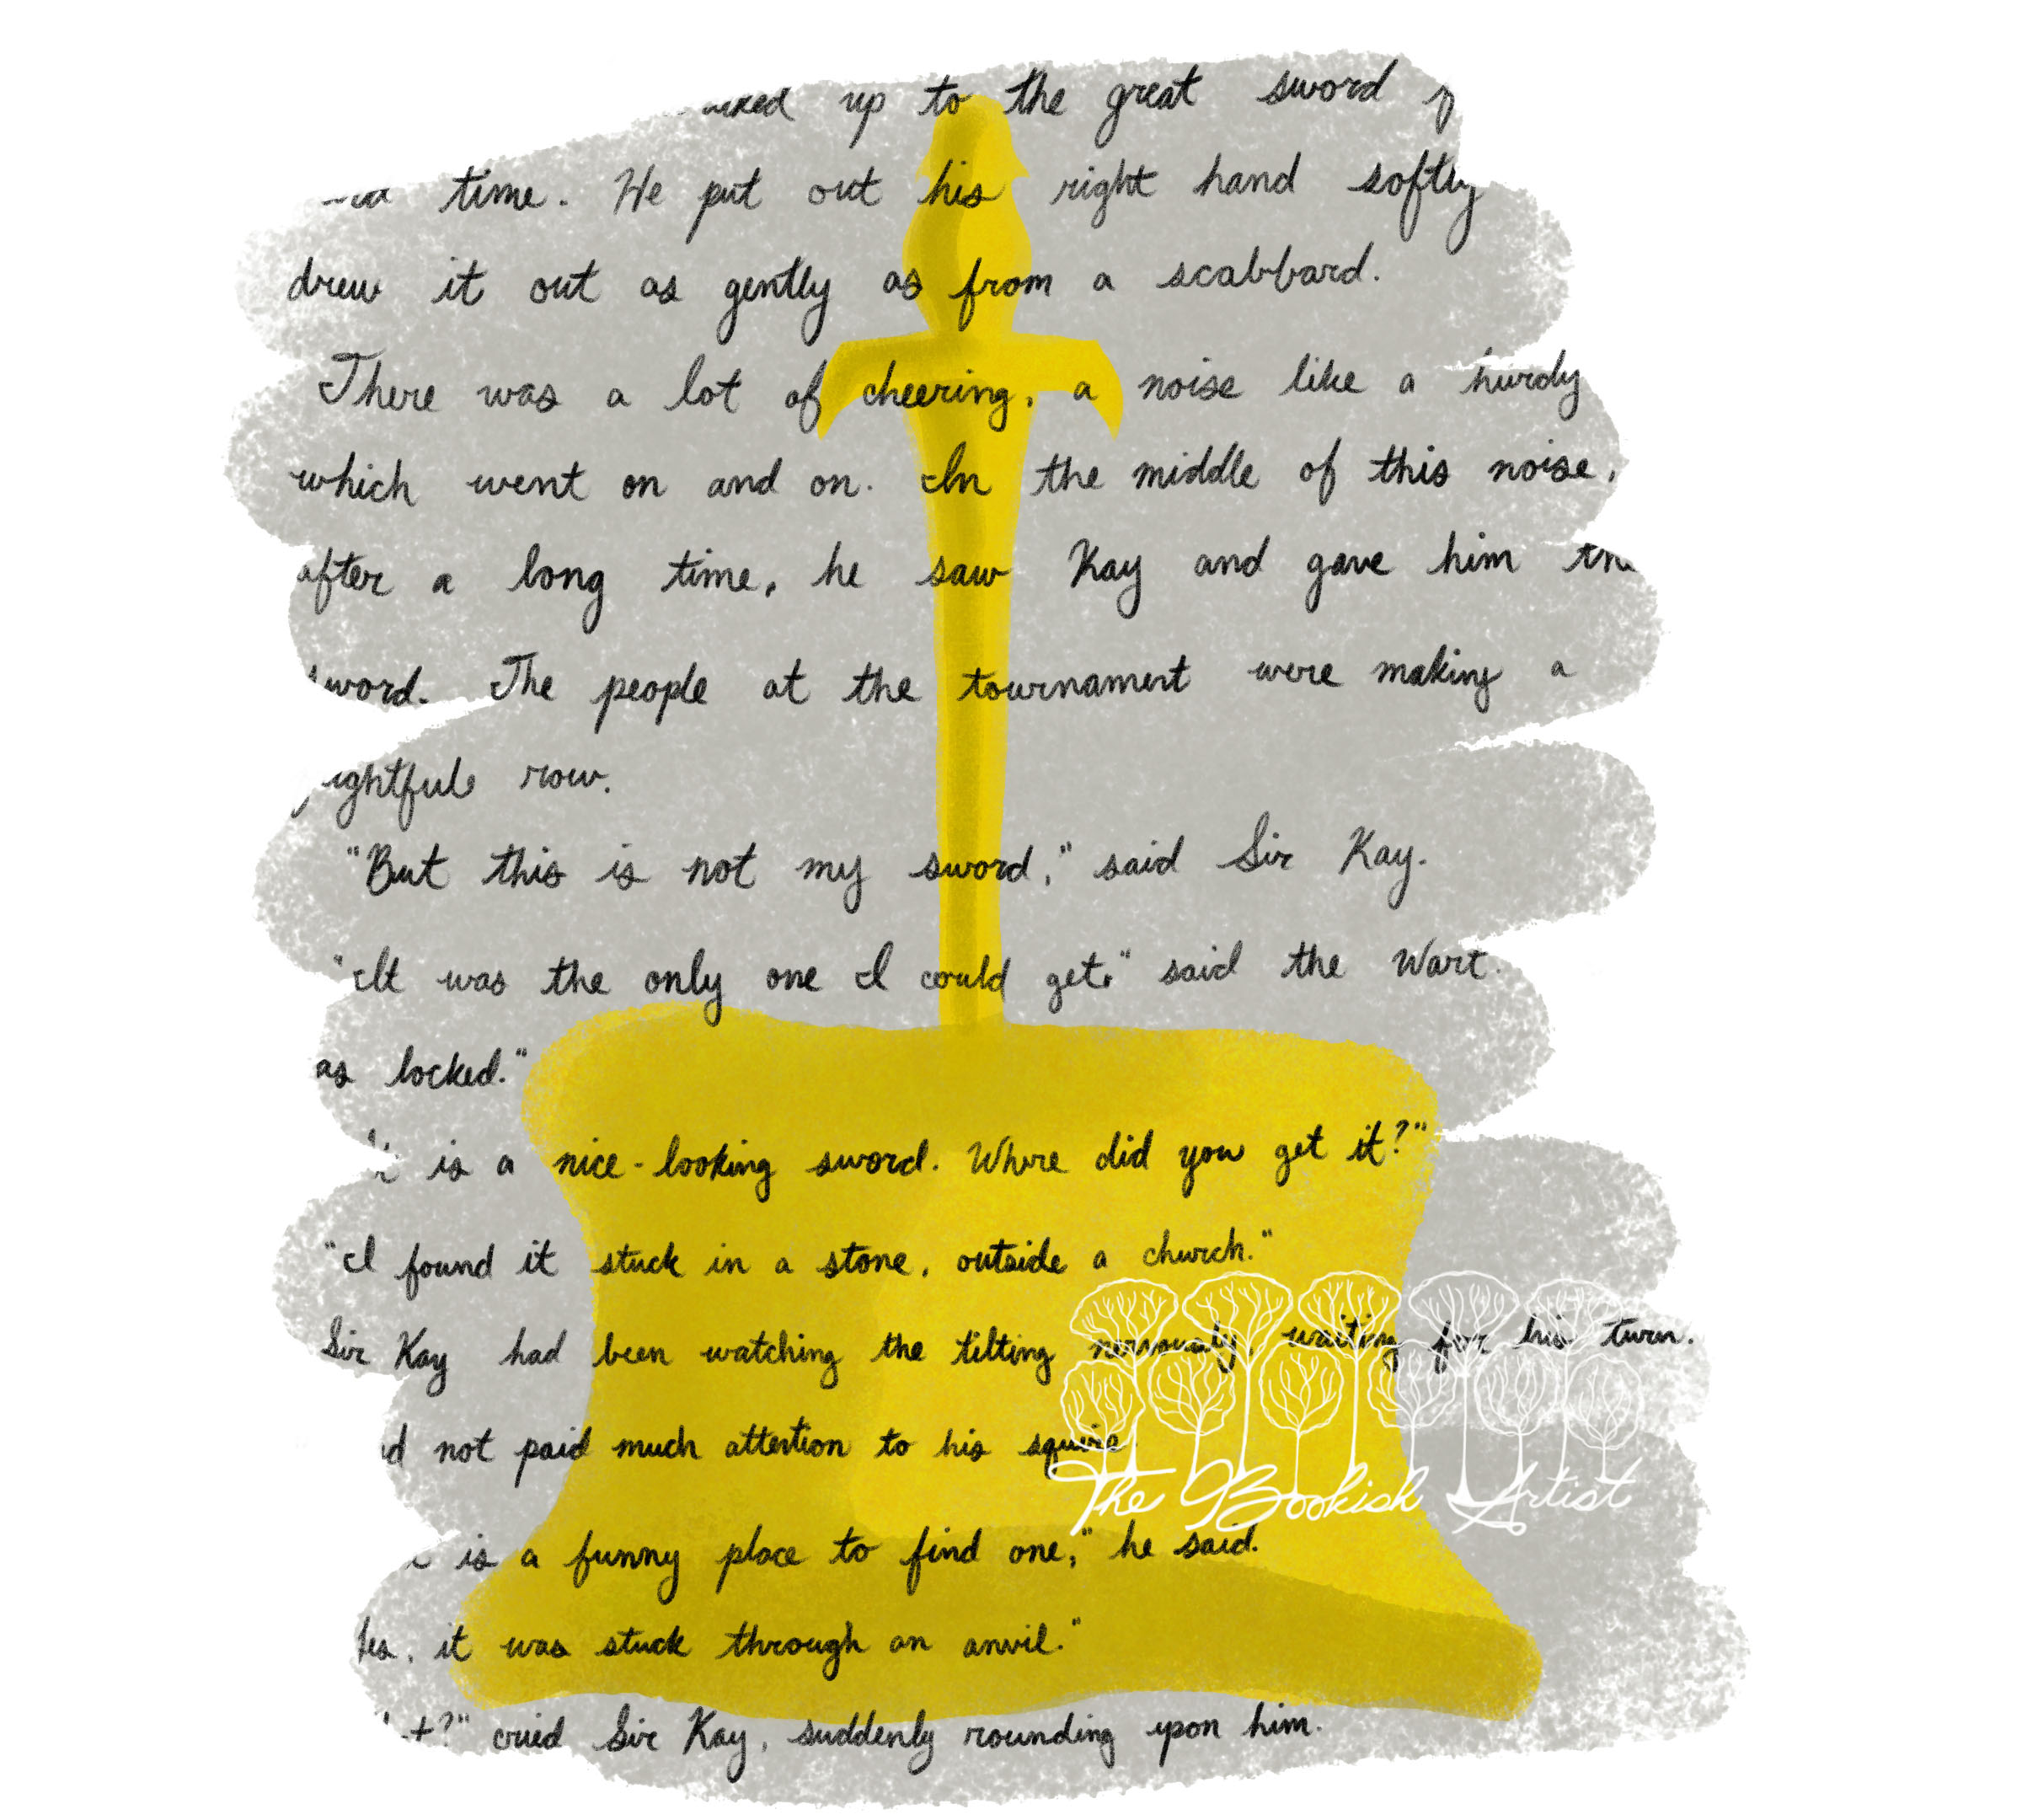 up to the great sword
time. He put out his right hand softly
drew it out as gently as from a scabbard.
There was a lot of cheering, a noise like a hurdy
which went on and on. In the middle of this noise,
after a long time, he saw Kay and gave him
sword. The people at the tournament were making a
ightful row.
"But this is not my sword," said Sir Kay.
"It was the only one I could get," said the Wart.
as locked."
is a nice-looking sword. Where did you get it?"
"I found it stuck in a stone, outside a church."
Sir Kay had been watching the tilting nervously, waiting for his turn.
not paid much attention to his squire.
is a funny place to find one," he said.
it was stuck through an anvil."
cried Sir Kay, suddenly rounding upon him.
The Bookish Artist